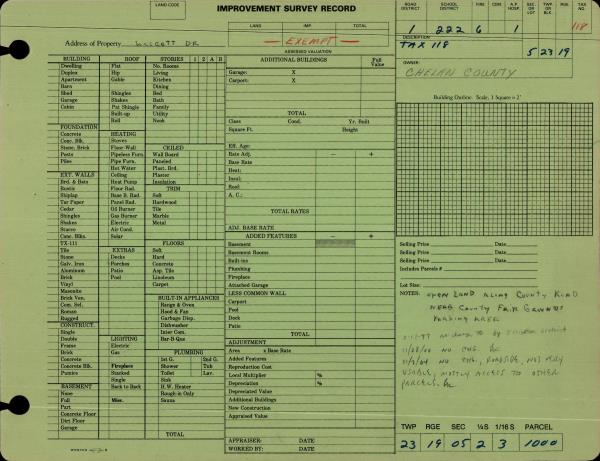 LAND CODE
IMPROVEMENT SURVEY RECORD
LAND IMP. TOTAL
EXEMPT
ASSESSED VALUATION
Address of Property DR
ROAD DISTRICT SCHOOL DISTRICT FIRE CEM. A.P. HOSP. SEC. OR LOT TWP. OR BLK. TAX NO.
1 222 6 1 118
DESCRIPTION
TAX 118 5 23 19
OWNER:
CHELAN COUNTY
BUILDING
Dwelling
Duplex
Apartment
Barn
Shed
Garage
Cabin
FOUNDATION
Concrete
Conc. Blk.
Stone, Brick
Posts
Piles
EXT. WALLS
Brd. & Bats
Rustic
Shiplap
Tar Paper
Cedar
Shingles
Shakes
Stucco
Conc. Blks.
TX-111
Tile
Stone
Galv. Iron
Aluminum
Brick
Vinyl
Masonite
Brick Ven.
Com. Sel.
Roman
Rugged
CONSTRUCT.
Single
Double
Frame
Brick
Concrete
Concrete Blk.
Pumice
BASEMENT
None
Full
Part
Concrete Floor
Dirt Floor
Garage
ROOF
Flat
Hip
Gable
Shingles
Shakes
Pat Shingle
Built-up
Roll
HEATING
Stoves
Floor Wall
Pipeless Furn.
Pipe Furn.
Hot Water
Ceiling
Heat Pump
Floor Rad.
Base B. Rad.
Panel Rad.
Oil Burner
Gas Burner
Electric
Air Cond.
Solar
EXTRAS
Decks
Porches
Patio
Pool
LIGHTING
Electric
Gas
Fireplace
Stacked
Single
Back to Back
Misc.
STORIES 1 2 A B
No. Rooms
Living
Kitchen
Dining
Bed
Bath
Family
Utility
Nook
CEILED
Wall Board
Paneled
Plast. Brd.
Plaster
Insulation
TRIM
Soft
Hardwood
Tile
Marble
Metal
FLOORS
Soft
Hard
Concrete
Asp. Tile
Linoleum
Carpet
BUILT-IN APPLIANCES
Range & Oven
Hood & Fan
Garbage Disp.
Dishwasher
Inter Com.
Bar-B-Que
PLUMBING
1st G. 2nd G.
Shower Tub
Toilet Lav.
Sink
H.W. Heater
Rough-in Only
Sauna
TOTAL
ADDITIONAL BUILDINGS Full Value
Garage: X
Carport: X
TOTAL
Class Cond. Yr. Built
Square Ft. Height
Eff. Age:
Rate Adj. − +
Base Rate
Heat:
Insul:
Roof:
A. C.:
TOTAL RATES
ADJ. BASE RATE
ADDED FEATURES − +
Basement
Basement Rooms
Built-ins
Plumbing
Fireplace
Attached Garage
LESS COMMON WALL
Carport
Pool
Deck
Patio
TOTAL
ADJUSTMENT
Area x Base Rate
Added Features
Reproduction Cost
Local Multiplier %
Depreciation %
Depreciated Value
Additional Buildings
New Construction
Appraised Value
APPRAISER: DATE
WORKED BY: DATE
Building Outline. Scale, 1 Square = 2'
Selling Price Date
Selling Price Date
Selling Price Date
Includes Parcels #
Lot Size:
NOTES: OPEN LAND ALONG COUNTY ROAD
NEAR COUNTY FAIR GROUNDS
PARKING AREA
NO CHG.
NO CHG, ROADSIDE, NOT VERY
USABLE, MOSTLY ACCESS TO OTHER
PARCELS.
TWP RGE SEC ¼S 1/16S PARCEL
23 19 05 2 3 1000